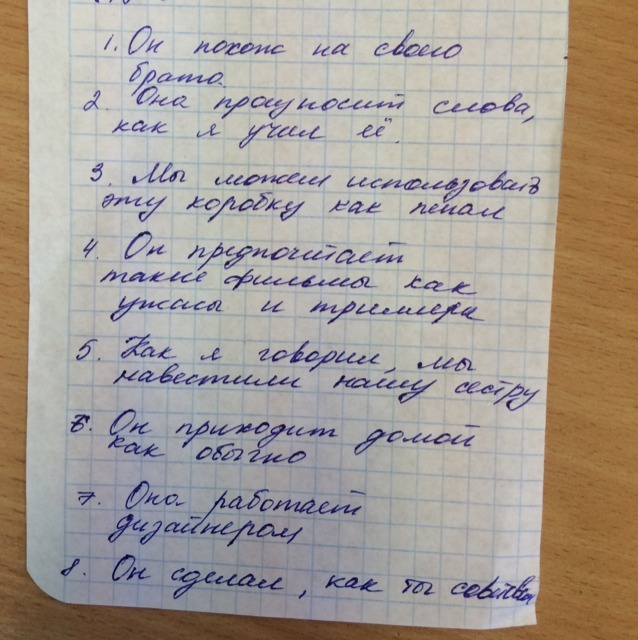 1. Он похож на своего
брата
2. Она произносит слова,
как я учил её.
3. Мы можем использовать
эту коробку как пенал
4. Он предпочитает
такие фильмы как
ужасы и триллера
5. Как я говорил, мы
навестили нашу сестру
6. Он приходит домой
как обычно
7. Она работает
дизайнером
8. Он сделал, как ты